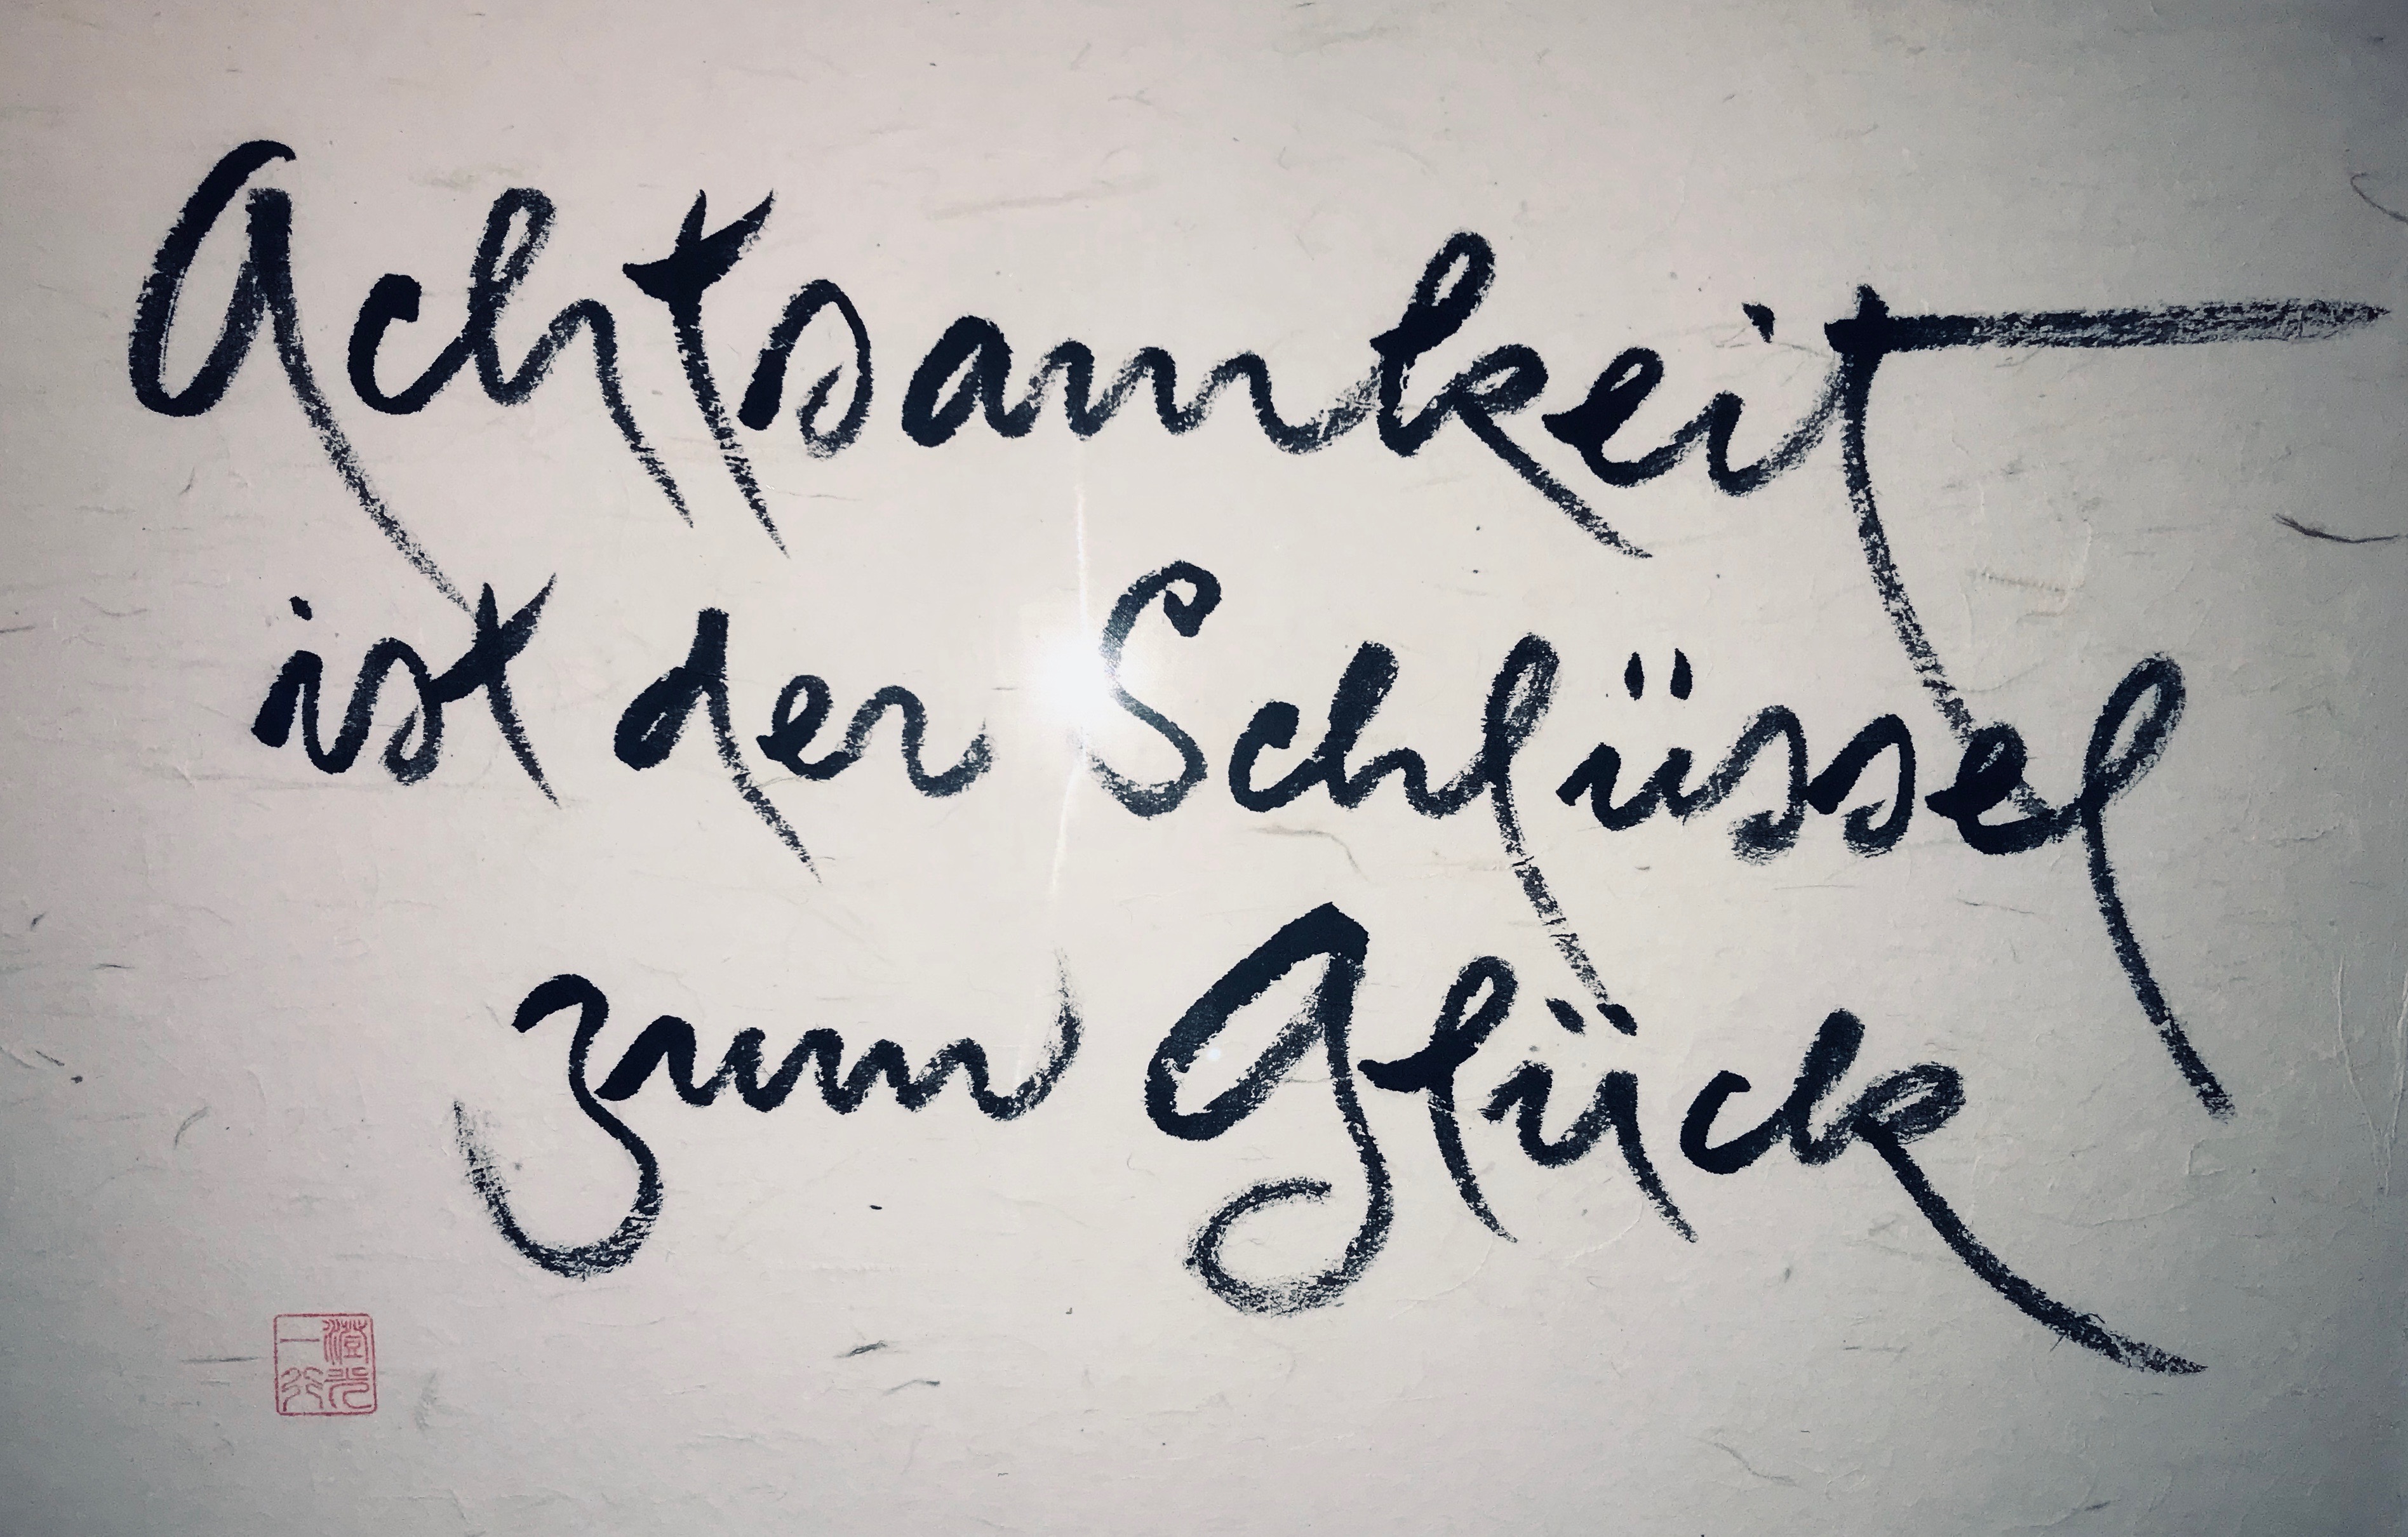 Achtsamkeit
ist der Schlüssel
zum Glück